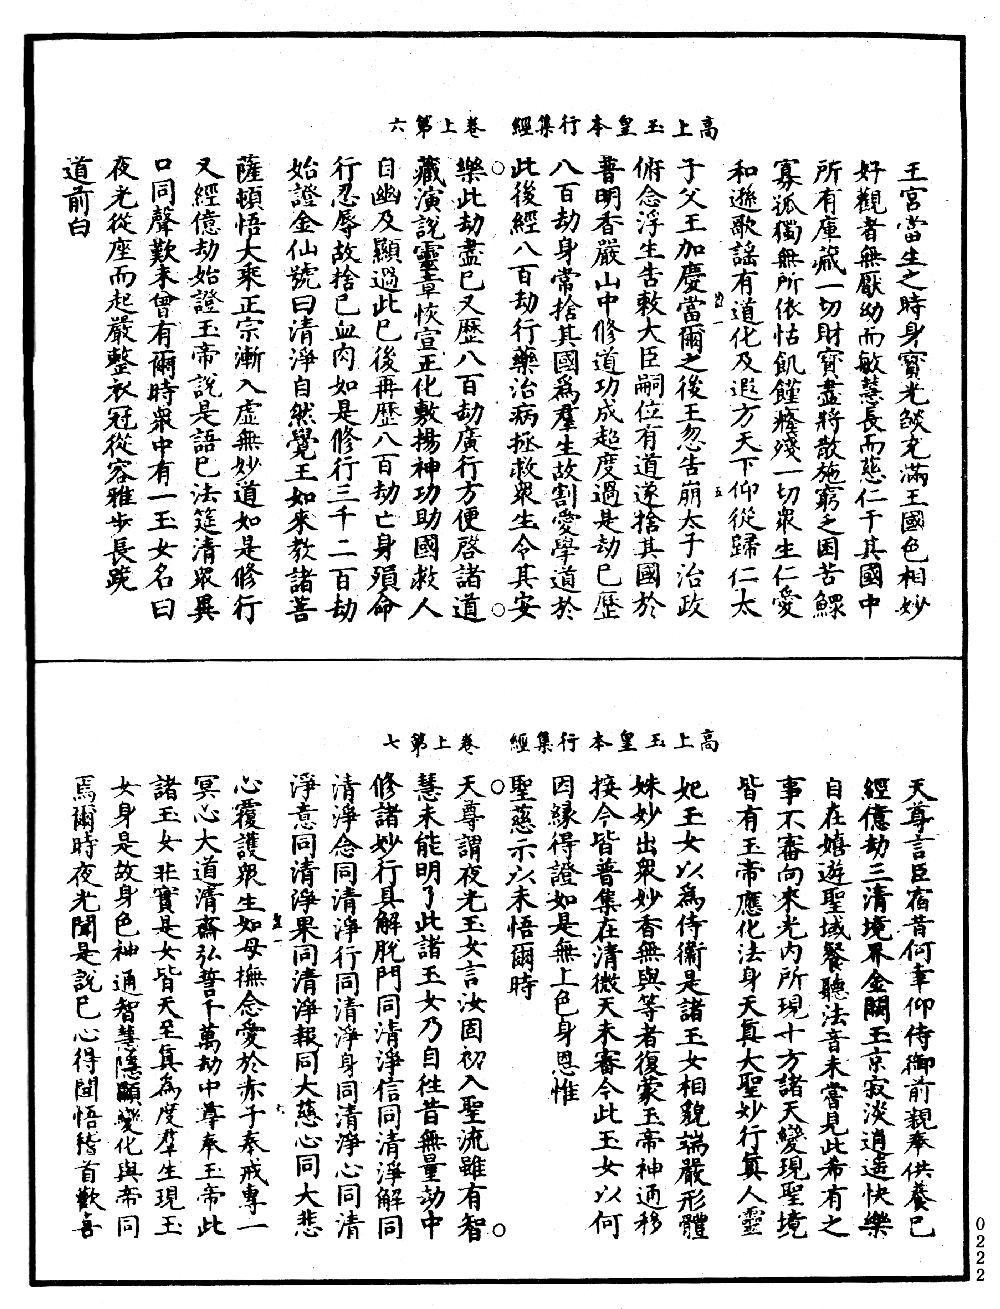 高上玉皇本行集經　卷上第六
王宮當生之時身寶光燄充滿王國色相妙
好觀者無厭幼而敏慧長而慈仁于其國中
所有庫藏一切財寶盡將散施窮乏困苦鰥
寡孤獨無所依怙飢饉癃殘一切衆生仁愛
和遜歌謠有道化及遐方天下仰從歸仁太
子父王加慶當爾之後王忽告崩太子治政
俯念浮生告敕大臣嗣位有道遂捨其國於
普明香嚴山中修道功成超度過是劫已歷
八百劫身常捨其國爲羣生故割愛學道於
此後經八百劫行藥治病拯救衆生令其安
樂此劫盡已又歷八百劫廣行方便啓諸道
藏演說靈章恢宣正化敷揚神功助國救人
自幽及顯過此已後再歷八百劫亡身殞命
行忍辱故捨已血肉如是修行三千二百劫
始證金仙號曰清淨自然覺王如來教諸菩
薩頓悟大乘正宗漸入虛無妙道如是修行
又經億劫始證玉帝說是語已法筵清眾異
口同聲歎未曾有爾時衆中有一玉女名曰
夜光從座而起嚴整衣冠從容雅步長跪
道前白
高上玉皇本行集經　卷上第七
天尊言臣宿昔何幸仰侍御前親奉供養已
經億劫三清境界金闕玉京寂淡逍遙快樂
自在嬉遊聖域餐聽法音未嘗見此希有之
事不審向來光內所現十方諸天變現聖境
皆有玉帝應化法身天真大聖妙行真人靈
妃玉女以爲侍衞是諸玉女相貌端嚴形體
姝妙出衆妙香無與等者復蒙玉帝神通移
接今皆普集在清微天未審今此玉女以何
因緣得證如是無上色身恩惟
聖慈示以未悟爾時
天尊謂夜光玉女言汝固初入聖流雖有智
慧未能明了此諸玉女乃自往昔無量劫中
修諸妙行具解脫門同清淨信同清淨解同
清淨念同清淨行同清淨身同清淨心同清
淨意同清淨果同清淨報同大慈心同大悲
心覆護衆生如母撫念愛於赤子奉戒專一
冥心大道清齋弘誓千萬劫中尊奉玉帝此
諸玉女非實是女皆天至真為度羣生現玉
女身是故身色神通智慧隱顯變化與帝同
焉爾時夜光聞是說已心得聞悟稽首歡喜
0222